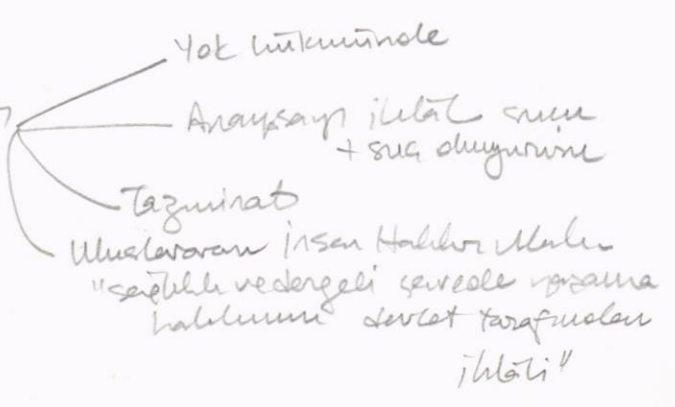 Yok hükmünde
Anayasayı ihlâl suçu
+ suç duyurusu
Tazminat
Uluslararası İnsan Hakları Mah.
"sağlıklı ve dengeli çevrede yaşama
hakkının devlet tarafından
ihlâli"